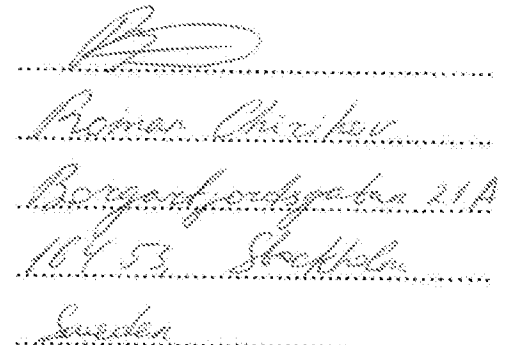 Roman Chirikov
Borgarfjordsgatan 21A
164 53 Stockholm
Sweden